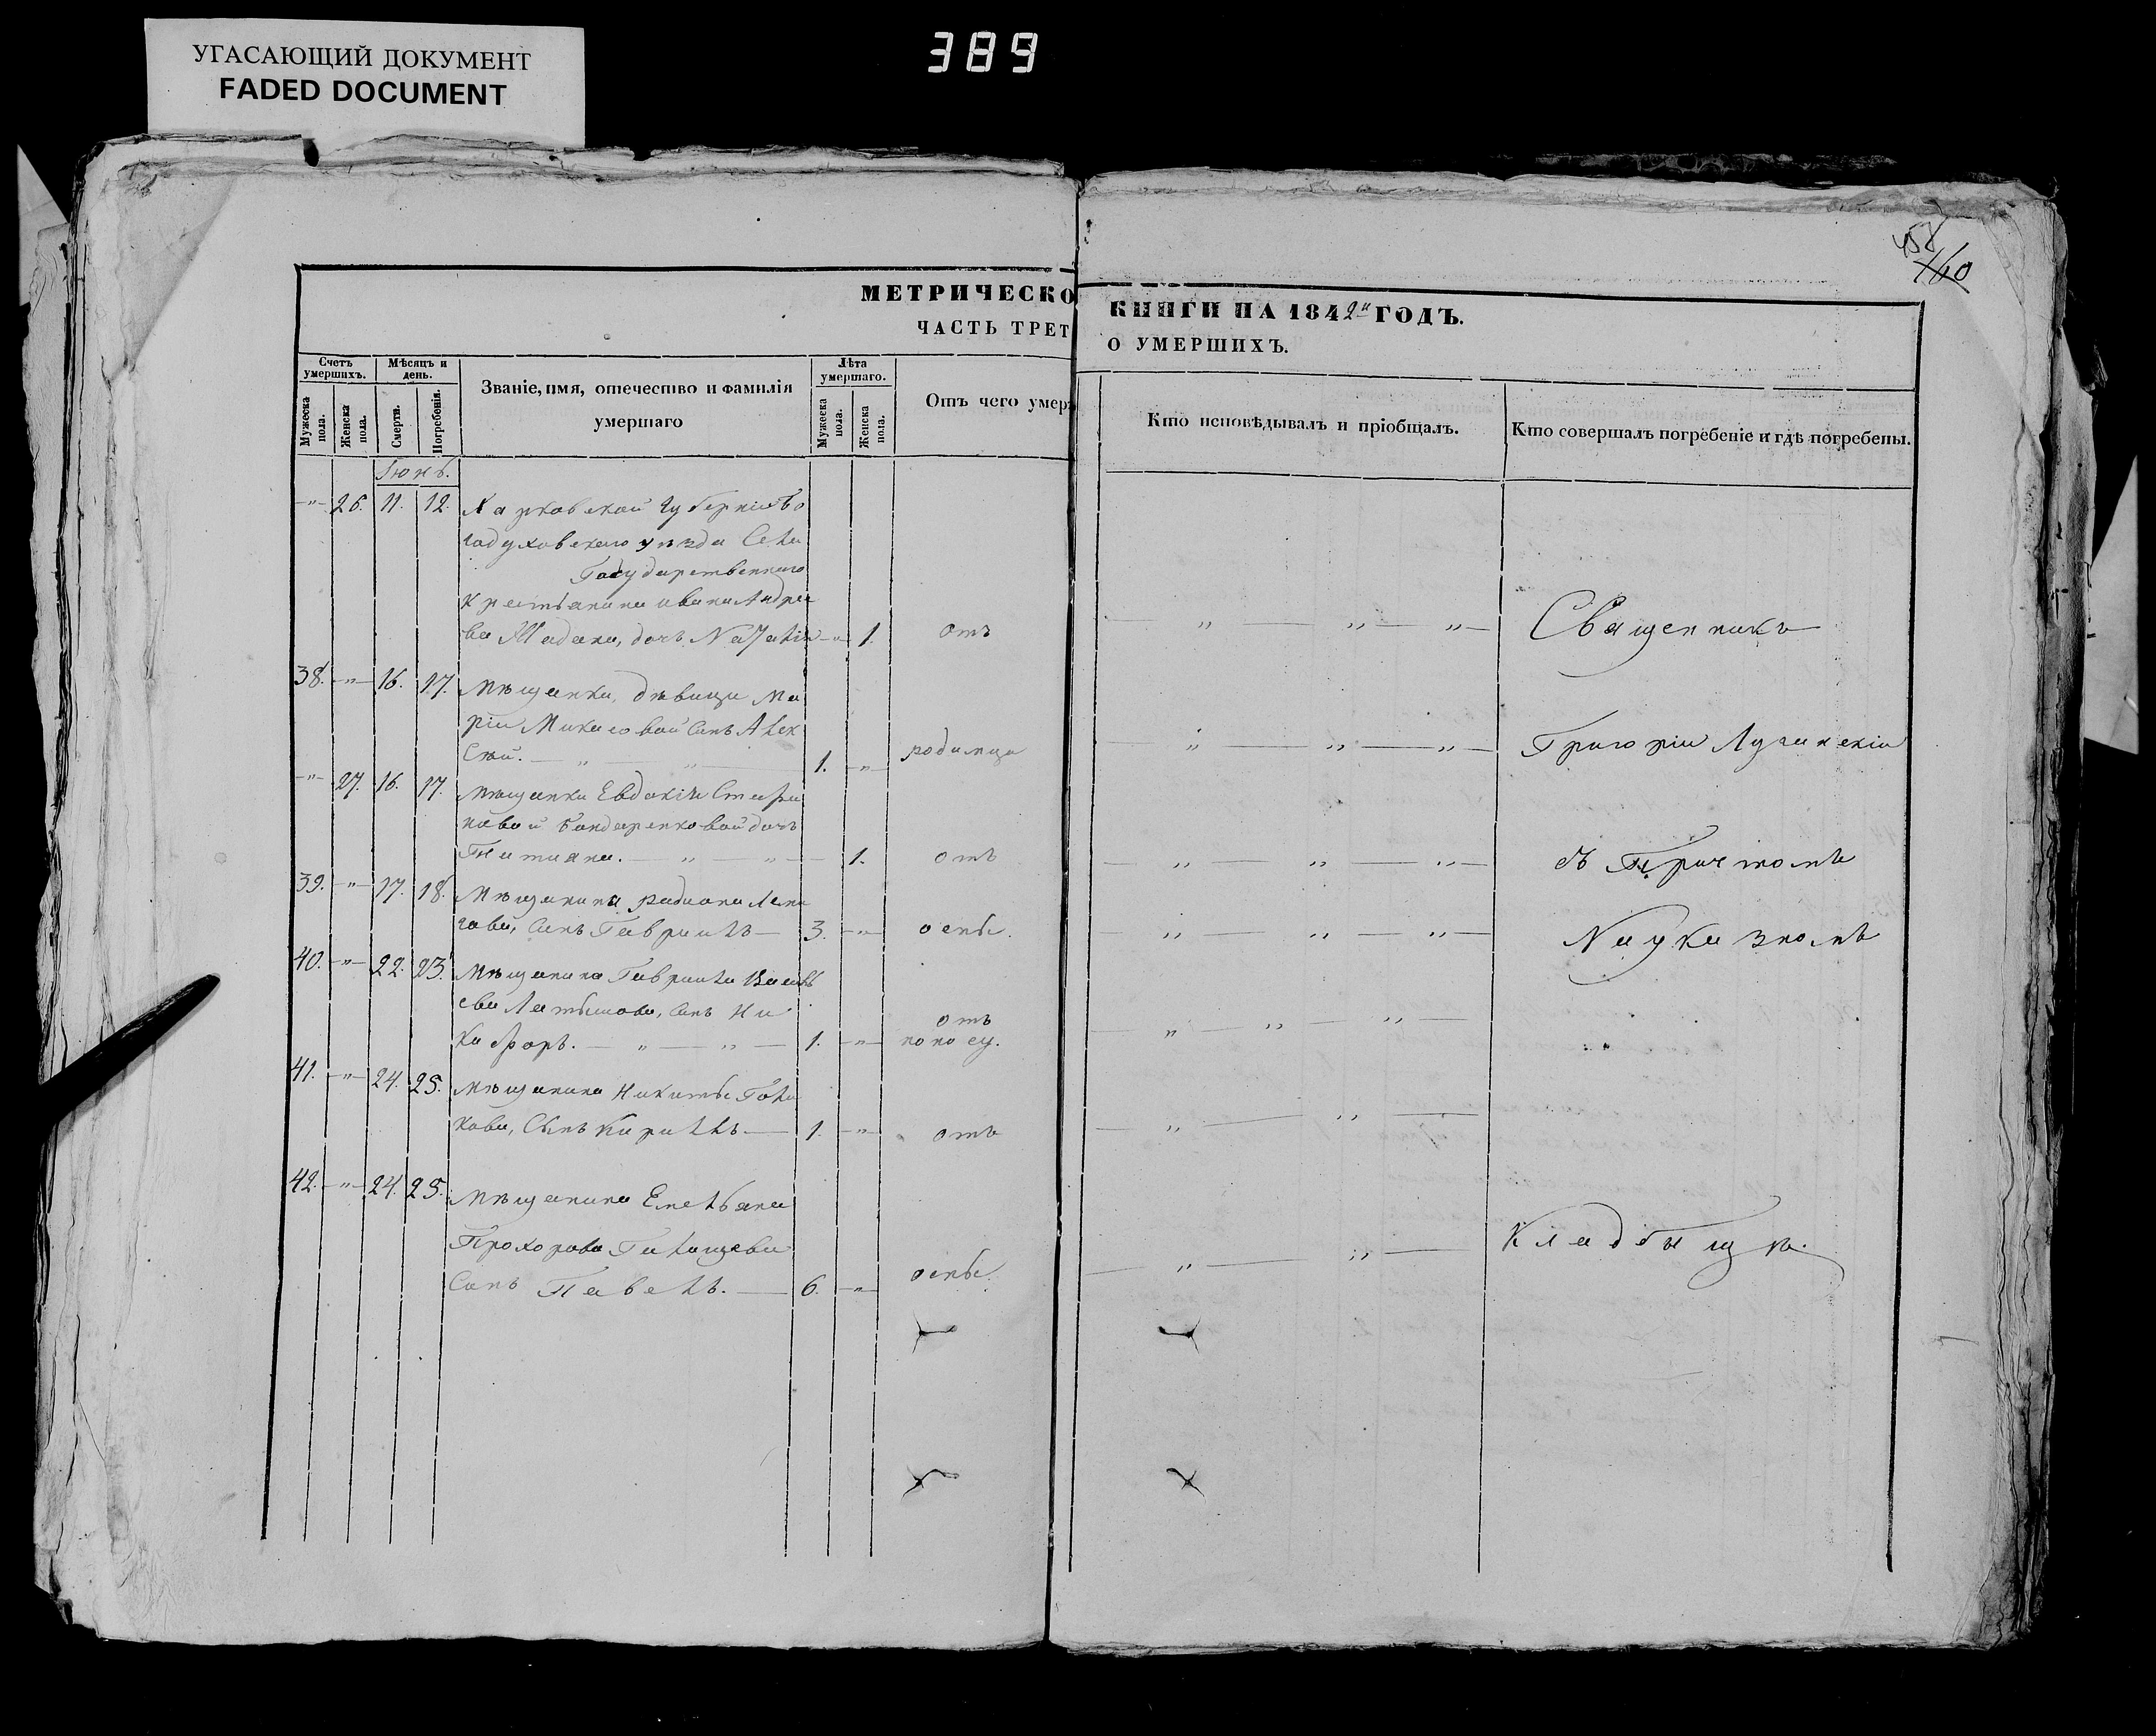 УГАСАЮЩИЙ ДОКУМЕНТ
FADED DOCUMENT
389
158
160
МЕТРИЧЕСКО
ЧАСТЬ ТРЕТ
КНИГИ НА 1842й ГОДЪ.
О УМЕРШИХЪ.
Счетъ умершихъ.
Мужеска пола.
Женска пола.
Мѣсяцъ и день.
Смерти.
Погребенія.
Званіе, имя, отечество и фамилія
умершаго
Лѣта умершаго.
Мужеска пола.
Женска пола.
Отъ чего умер
Кто исповѣдывалъ и пріобщалъ.
Кто совершалъ погребеніе и гдѣ погребены.
Іюнь.
26. 11. 12. Харковской Губерніи Бо
годуховскаго уѣзда Села
Государственнаго
Крестьянина Ивана Андрее
ва дочь Наталія 1. отъ
Священникъ
38. 16. 17. Мѣщанки, дѣвицы Ма
ріи сынъ Алек
сѣй. 1. родимца
Григорій
27. 16. 17. Мѣщанки Евдокіи
Бондаренковой дочь
Татіяна. 1. отъ
съ Причтомъ
39. 17. 18. Мѣщанина Радиона
гова, сынъ Гавріилъ 3. оспы.
На указномъ
40. 22. 23. Мѣщанина Гавріила Василь
ева Латышова, сынъ Ни
кифоръ. 1. отъ
поносу.
41. 24. 25. Мѣщанина Никиты Голи
кова, Сынъ Кирилъ 1. отъ
42. 24. 25. Мѣщанина Емельяна
Прохорова
Сынъ Павелъ. 6. оспы.
Кладбыщѣ.